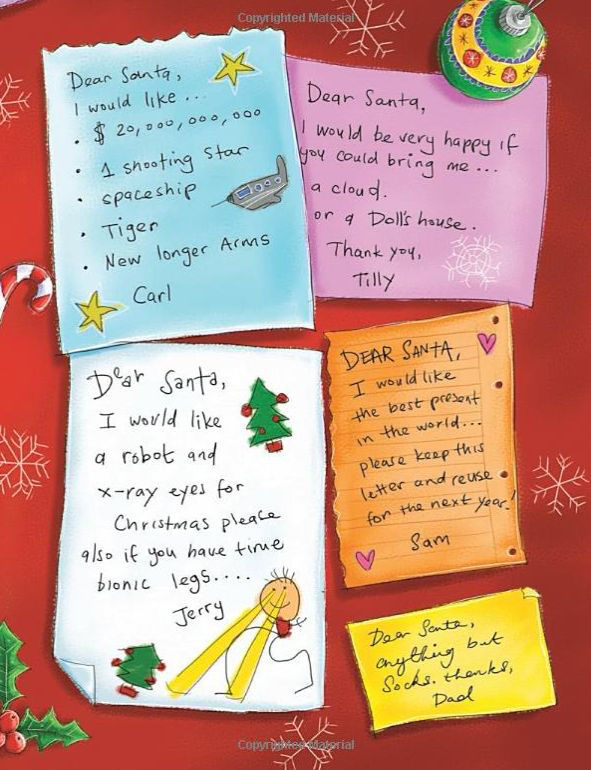 Copyrighted Material
Dear Santa,
I would like ...
. $ 20,000,000,000
. 1 shooting Star
. spaceship
. Tiger
. New longer Arms
Carl
Dear Santa,
I would be very happy if
you could bring me...
a cloud.
or a Doll's house.
Thank you,
Tilly
Dear Santa,
I would like
a robot and
x-ray eyes for
Christmas please
also if you have time
bionic legs....
Jerry
DEAR SANTA,
I would like
the best present
in the world...
please keep this
letter and reuse
for the next year!
Sam
Dear Santa,
anything but
Socks. thanks,
Dad
Copyrighted Material